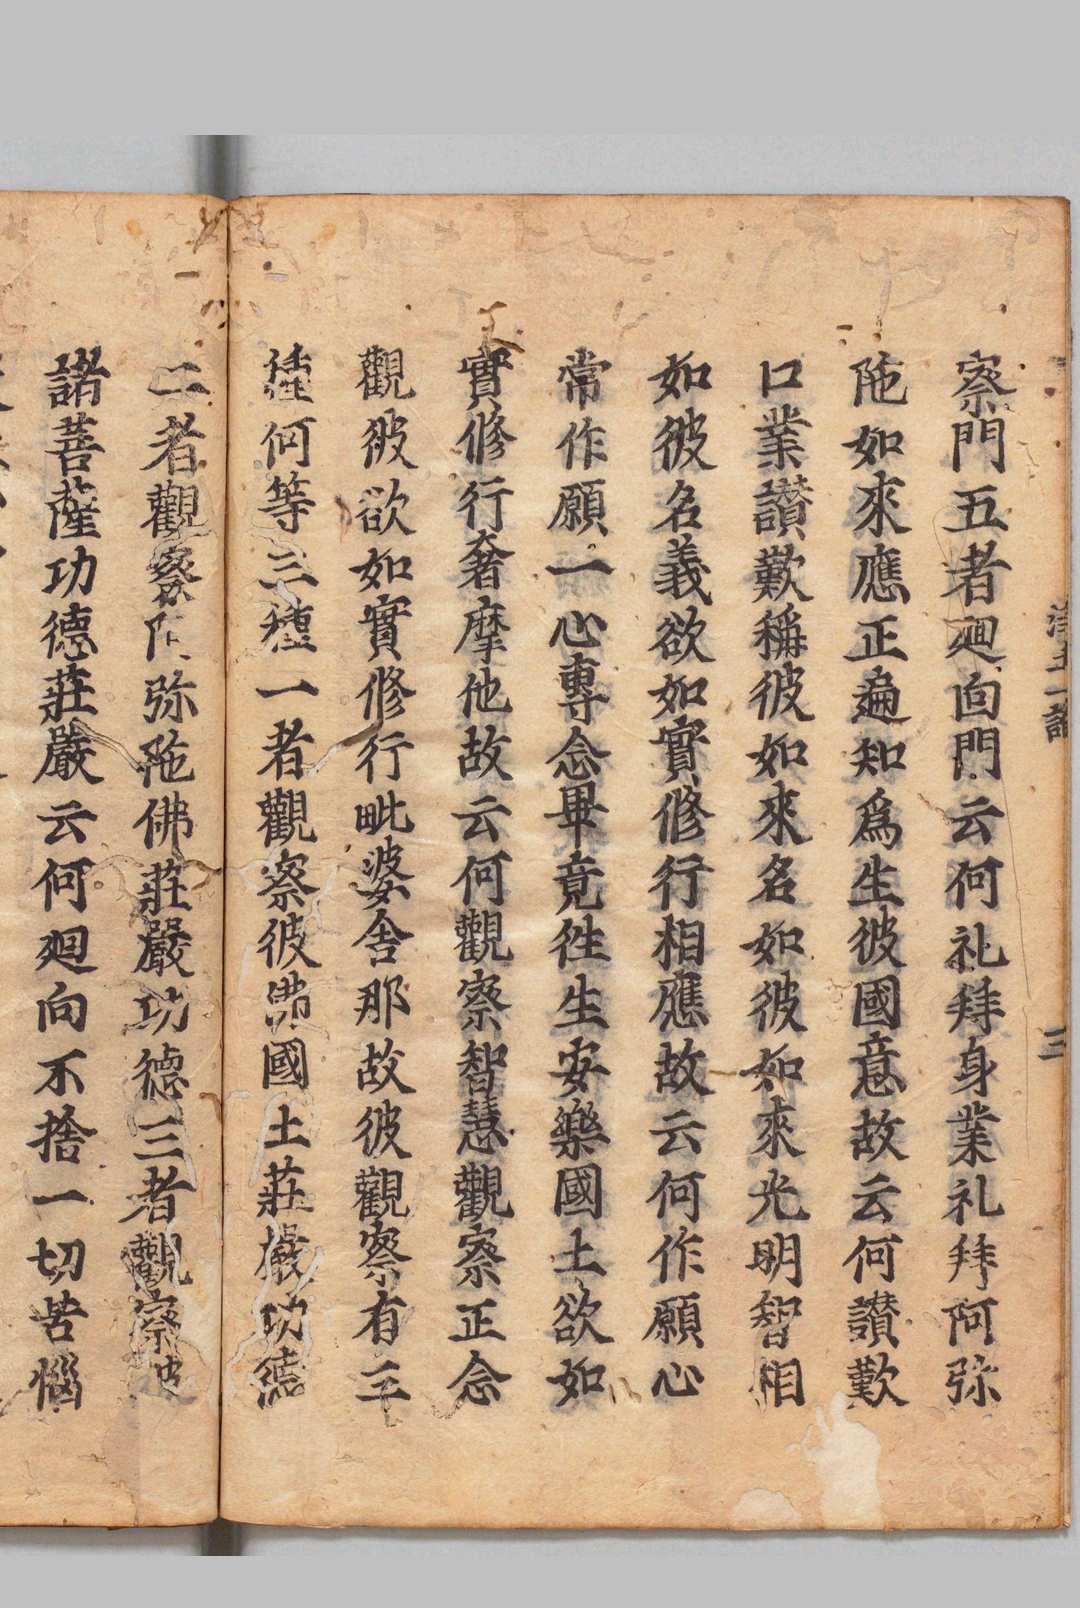 察門五者廻向門云何礼拜身業礼拜阿弥
陁如來應正遍知爲生彼國意故云何讃歎
口業讃歎稱彼如來名如彼如來光明智相
如彼名義欲如實修行相應故云何作願心
常作願一心專念畢竟徃生安樂國土欲如
實修行奢摩他故云何觀察智慧觀察正念
觀彼欲如實修行毗婆舍那故彼觀察有三
種何等三種一者觀察彼佛國土莊嚴功德
二者觀察阿弥陁佛莊嚴功德三者觀察彼
諸菩薩功德莊嚴云何廻向不捨一切苦惱